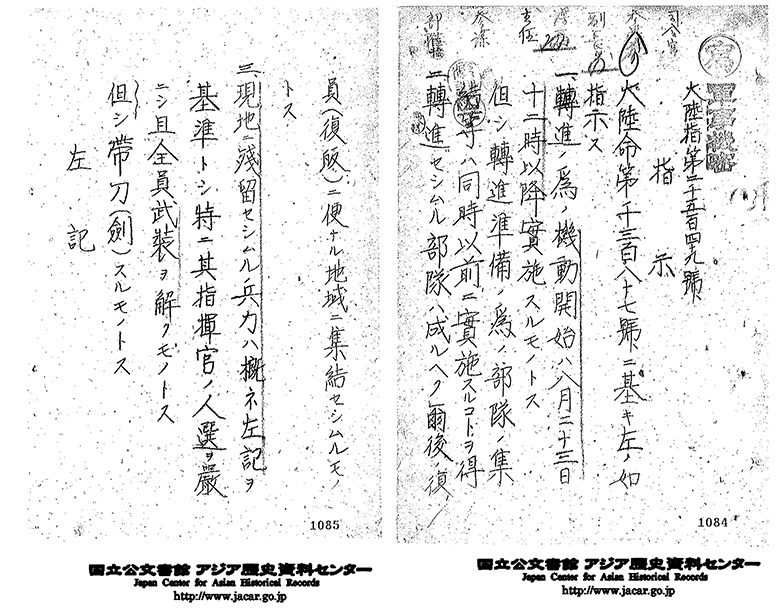 寫
軍事機密
大陸指第二千五百四九號
指示
大陸命第千三百八十七號ニ基キ左ノ如
指示ス
一、轉進ノ爲ノ機動開始ハ八月二十三日
十二時以降實施スルモノトス
但シ轉進準備ノ爲ノ部隊ノ集
結等ハ同時以前ニ實施スルコトヲ得
二、轉進セシムル部隊ハ成ルヘク爾後ノ復
1084
国立公文書館 アジア歴史資料センター
Japan Center for Asian Historical Records
http://www.jacar.go.jp
員(復皈)ニ便ナル地域ニ集結セシムルモノ
トス
三、現地ニ殘留セシムル兵力ハ概ネ左記ヲ
基準トシ特ニ其指揮官ノ人選ヲ嚴
ニシ且全員武裝ヲ解クモノトス
但シ帶刀(劍)スルモノトス
左記
1085
国立公文書館 アジア歴史資料センター
Japan Center for Asian Historical Records
http://www.jacar.go.jp